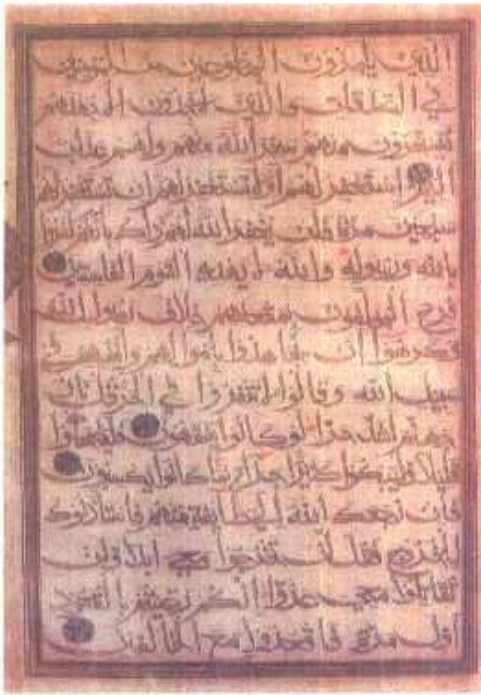 الذين يلمزون المطوعين من المؤمنين
في الصدقات والذين لا يجدون الا جهدهم
فيسخرون منهم سخر الله منهم ولهم عذاب
اليم استغفر لهم أو لا تستغفر لهم ان تستغفر لهم
سبعين مرة فلن يغفر الله لهم ذلك بأنهم كفروا
بالله ورسوله والله لا يهدي القوم الفاسقين
فرح المخلفون بمقعدهم خلاف رسول الله
وكرهوا أن يجاهدوا بأموالهم وأنفسهم في
سبيل الله وقالوا لا تنفروا في الحر قل نار
جهنم أشد حرا لو كانوا يفقهون فليضحكوا
قليلا وليبكوا كثيرا جزاء بما كانوا يكسبون
فإن رجعك الله إلى طائفة منهم فاستأذنوك
للخروج فقل لن تخرجوا معي أبدا ولن
تقاتلوا معي عدوا إنكم رضيتم بالقعود
أول مرة فاقعدوا مع الخالفين